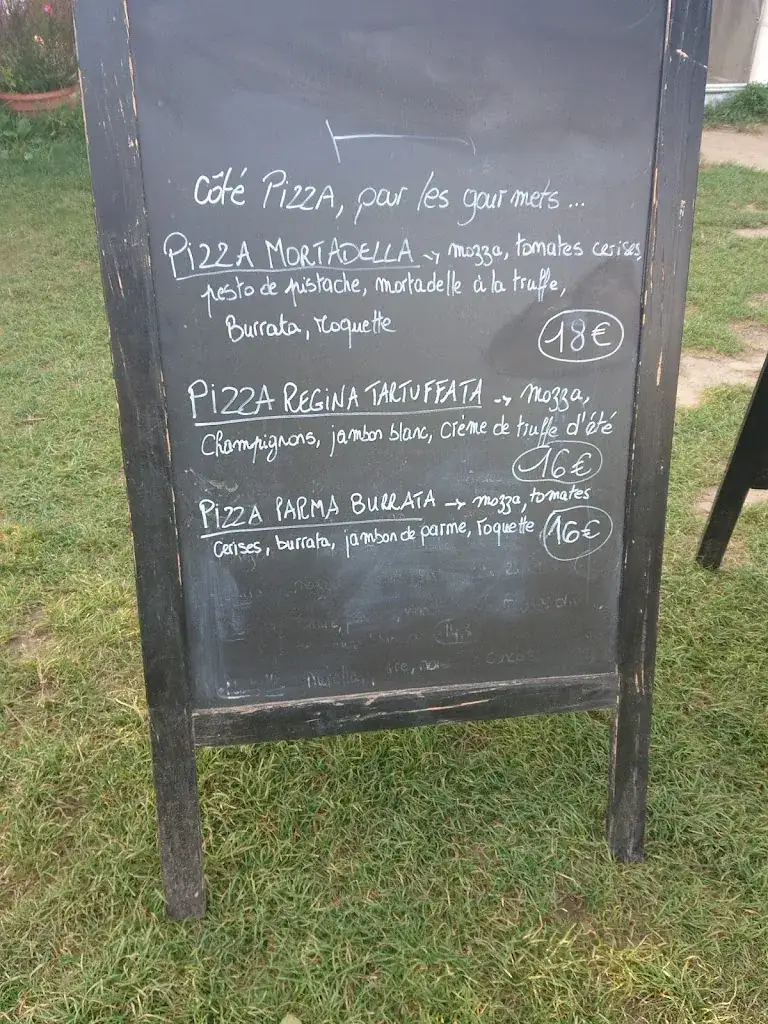 Côté PIZZA, pour les gourmets...
PIZZA MORTADELLA → mozza, tomates cerises,
pesto de pistache, mortadelle à la truffe,
Burrata, roquette
18€
PIZZA REGINA TARTUFFATA → mozza,
Champignons, jambon blanc, Crème de truffe d'été
16€
PIZZA PARMA BURRATA → mozza, tomates
Cerises, burrata, jambon de parme, roquette 16€